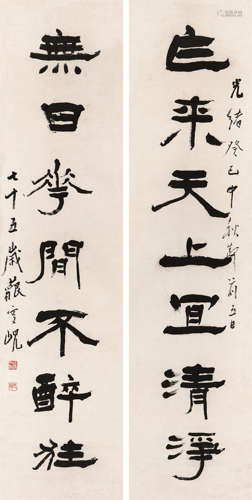 来天上宜清淨
光緒癸巳中秋前五日
無日花間不醉狂
七十五歲藐叟峴